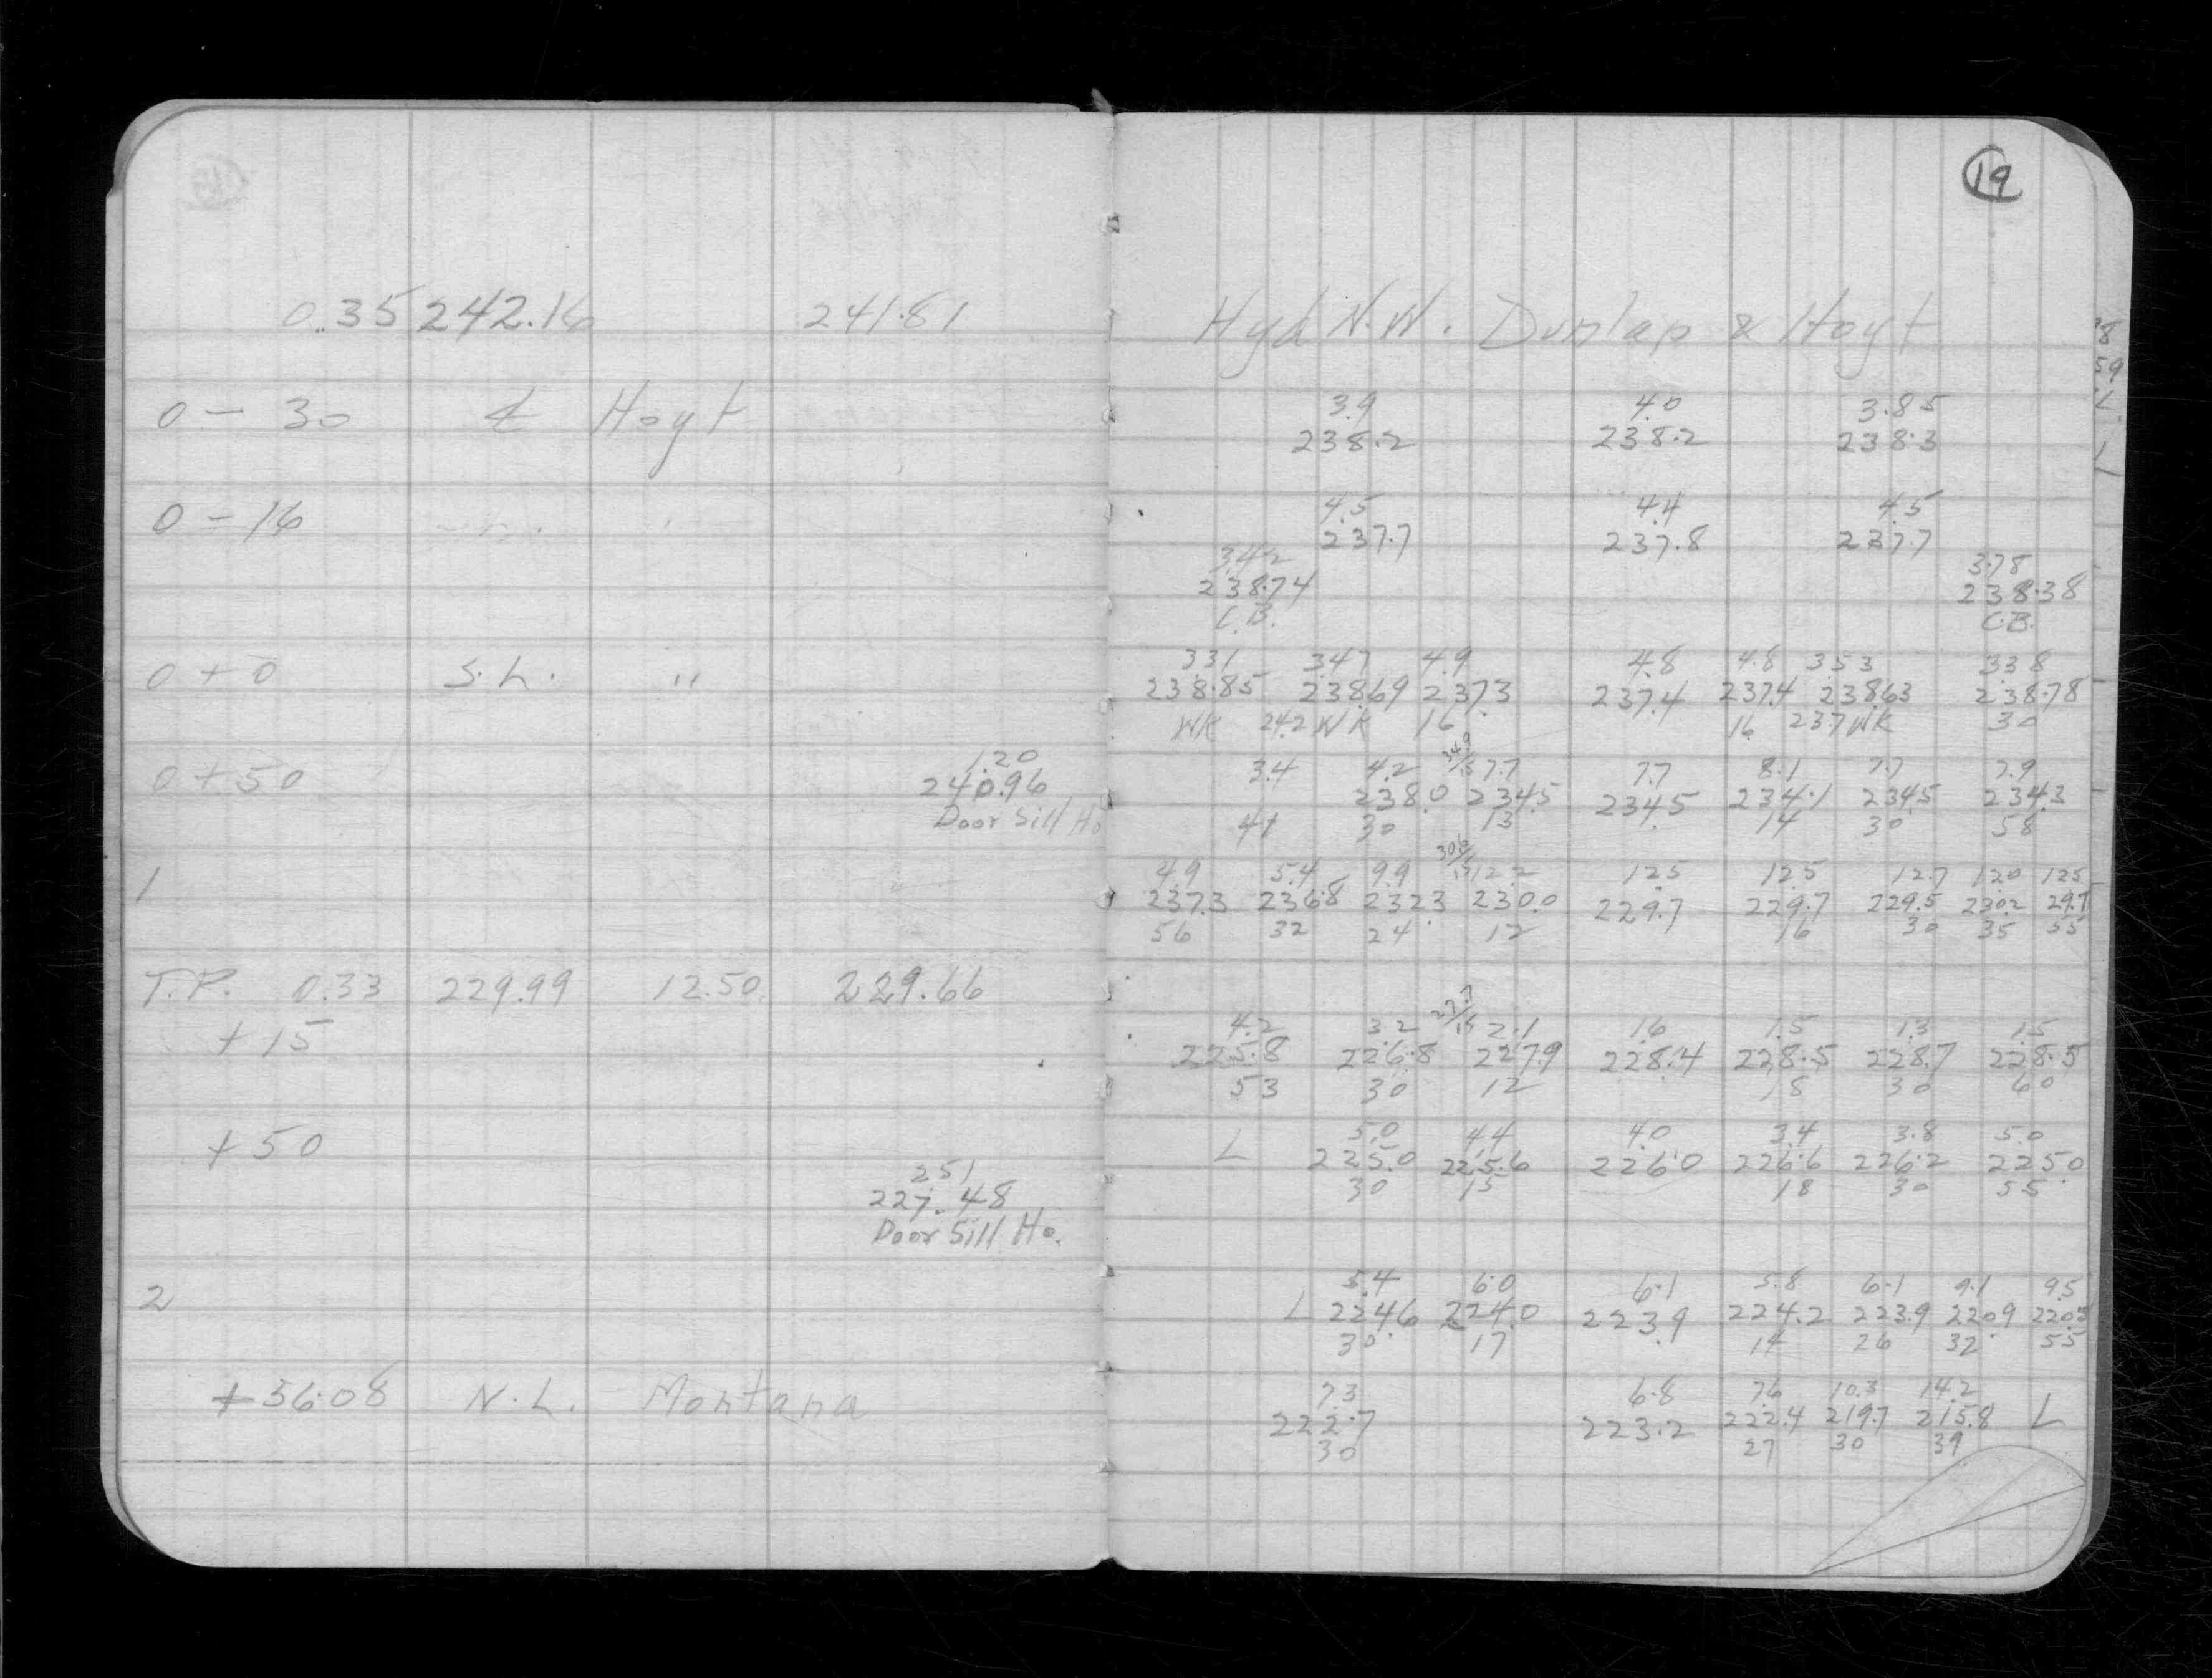 19
0.35 242.16 241.81 Hyd N.W. Dunlap & Hoyt
3.9 4.0 3.85
0 - 30 ℄ Hoyt 238.2 238.2 238.3
4.5 4.4 4.5
0 - 16 237.7 237.8 237.7
3.42 3.78
238.74 238.38
C.B. C.B.
3.31 3.47 4.9 4.8 4.8 3.53 3.38
0 + 0 S.L. " 238.85 238.69 237.3 237.4 237.4 238.63 238.78
WK 24.2 WK 16 16 23.7 WK 30
1.20 3.4 4.2 7.7 7.7 8.1 7.7 7.9
0 + 50 240.96 238.0 234.5 234.5 234.1 234.5 234.3
Door Sill Ho 41 30 13 14 30 58
4.9 5.4 9.9 12.2 12.5 12.5 12.7 12.0 12.5
1 237.3 236.8 232.3 230.0 229.7 229.7 229.5 230.2 29.7
56 32 24 12 16 30 35 55
T.P. 0.33 229.99 12.50 229.66
4.2 3.2 27.7/15 2.1 1.6 1.5 1.3 1.5
+ 15 225.8 226.8 227.9 228.4 228.5 228.7 228.5
53 30 12 18 30 60
5.0 4.4 4.0 3.4 3.8 5.0
+ 50 L 225.0 225.6 226.0 226.6 226.2 225.0
30 15 18 30 55
2.51
227.48
Door Sill Ho.
5.4 6.0 6.1 5.8 6.1 9.1 9.5
2 L 224.6 224.0 223.9 224.2 223.9 220.9 220.5
30 17 14 26 32 55
7.3 6.8 7.6 10.3 14.2
+ 56.08 N.L. Montana 222.7 223.2 222.4 219.7 215.8 L
30 27 30 39